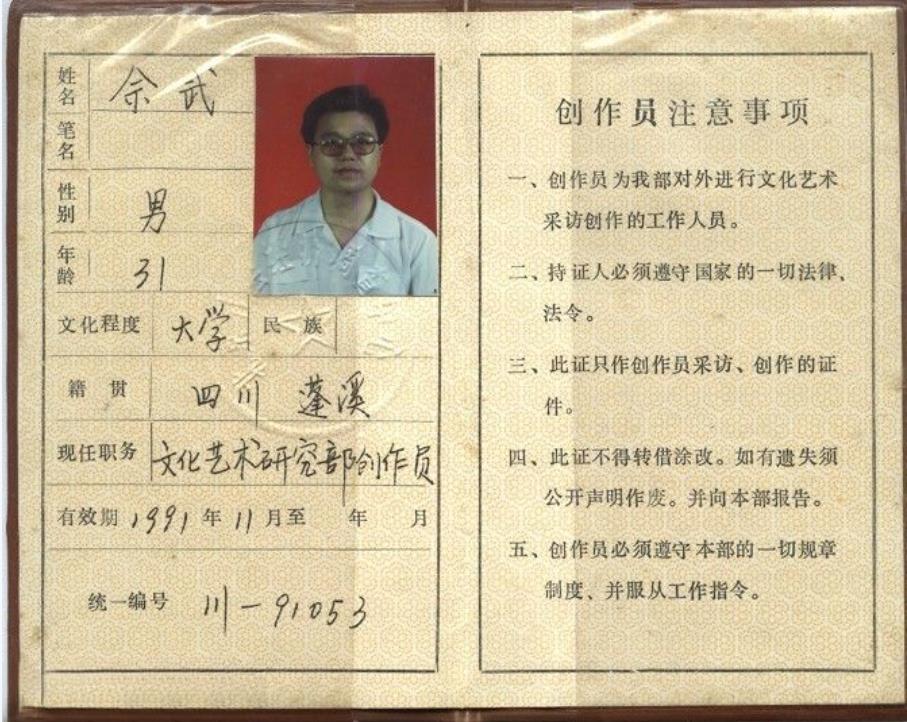 姓名 佘武
笔名
性别 男
年龄 31
文化程度 大学 民族
籍贯 四川 蓬溪
现任职务 文化艺术研究部创作员
有效期 1991年11月至 年 月
统一编号 川-91053
创作员注意事项
一、创作员为我部对外进行文化艺术
采访创作的工作人员。
二、持证人必须遵守国家的一切法律、
法令。
三、此证只作创作员采访、创作的证
件。
四、此证不得转借涂改。如有遗失须
公开声明作废。并向本部报告。
五、创作员必须遵守本部的一切规章
制度、并服从工作指令。